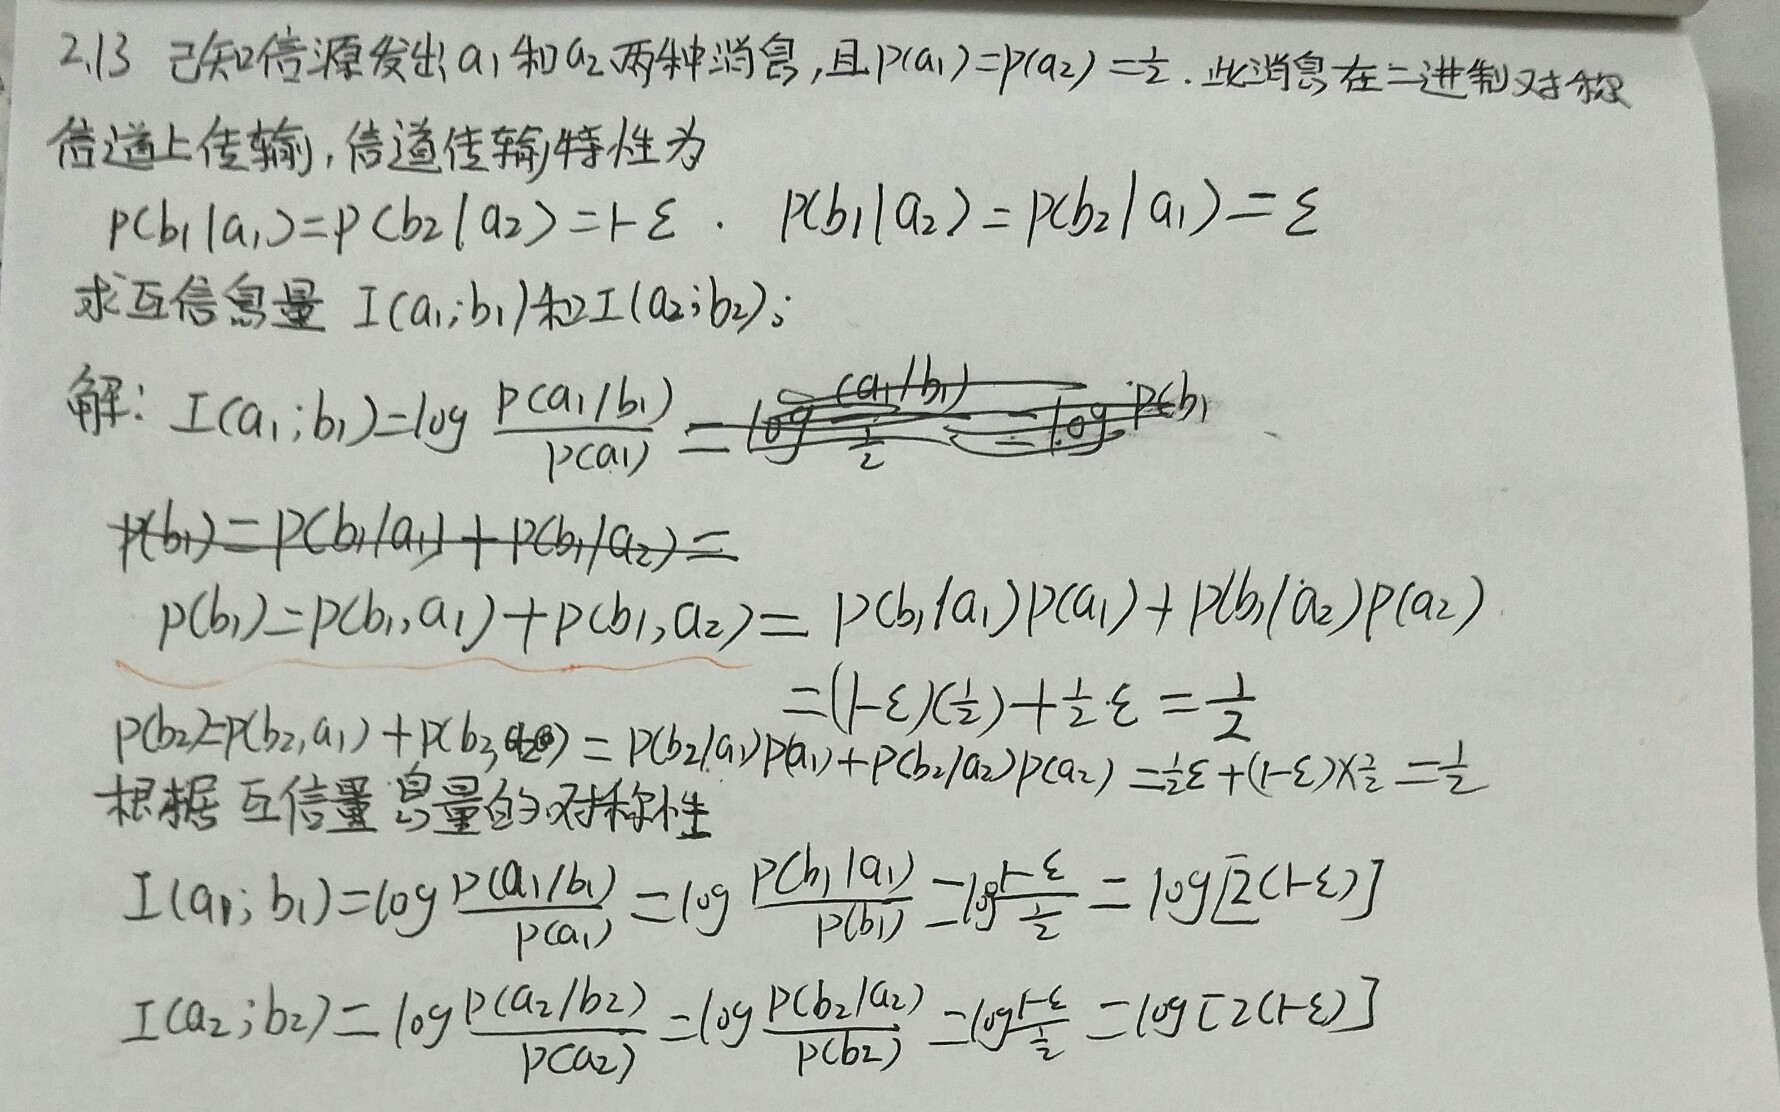 2.13 已知信源发出a₁和a₂两种消息,且p(a₁)=p(a₂)=½.此消息在二进制对称
信道上传输,信道传输特性为
p(b₁|a₁)=p(b₂|a₂)=1-ε. p(b₁|a₂)=p(b₂|a₁)=ε
求互信息量 I(a₁;b₁)和I(a₂;b₂);
解: I(a₁;b₁)=log p(a₁/b₁)/p(a₁) = log (a₁/b₁)/½ = log p(b₁
p(b₁)=p(b₁/a₁)+p(b₁/a₂)=
p(b₁)=p(b₁,a₁)+p(b₁,a₂)= p(b₁/a₁)p(a₁)+p(b₁/a₂)p(a₂)
=(1-ε)(½)+½·ε=½
p(b₂)=p(b₂,a₁)+p(b₂,a₂)=p(b₂/a₁)p(a₁)+p(b₂/a₂)p(a₂)=½ε+(1-ε)×½=½
根据互信息量的对称性
I(a₁;b₁)=log p(a₁/b₁)/p(a₁)=log p(b₁|a₁)/p(b₁)=log (1-ε)/½=log[2(1-ε)]
I(a₂;b₂)=log p(a₂/b₂)/p(a₂)=log p(b₂/a₂)/p(b₂)=log (1-ε)/½=log[2(1-ε)]